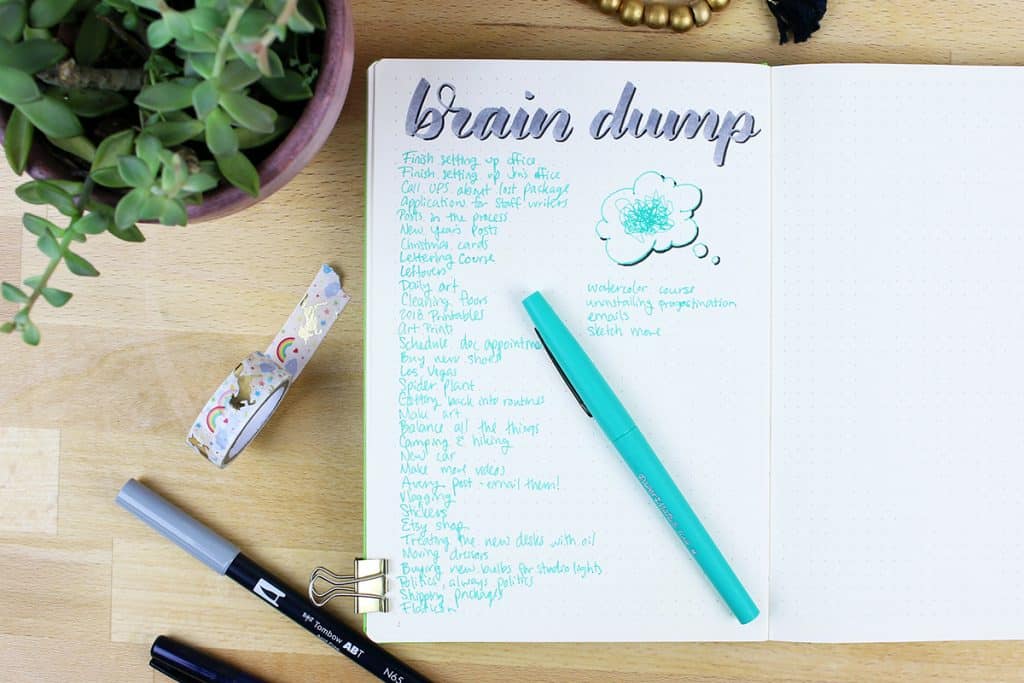 brain dump
Finish setting up office
Finish setting up Jon's office
Call UPS about lost package
Application for staff writers
Posts in the process
New Year's Posts
Christmas cards
Lettering Course
Leftovers
Daily art
Cleaning floors
2018 Printables
Art Prints
Schedule doc appointme
Buy new shoes
Las Vegas
Spider Plant
Getting back into routines
Make art
Balance all the things
Camping & hiking
New car
Make more videos
Avery post - email them!
Vlogging
Stickers
Etsy shop
Treating the new desks with oil
Moving dressers
Buying new bulbs for studio lights
Politics, always politics
Shipping packages
watercolor course
uninstalling
emails
sketch more
Tombow ABT
N65